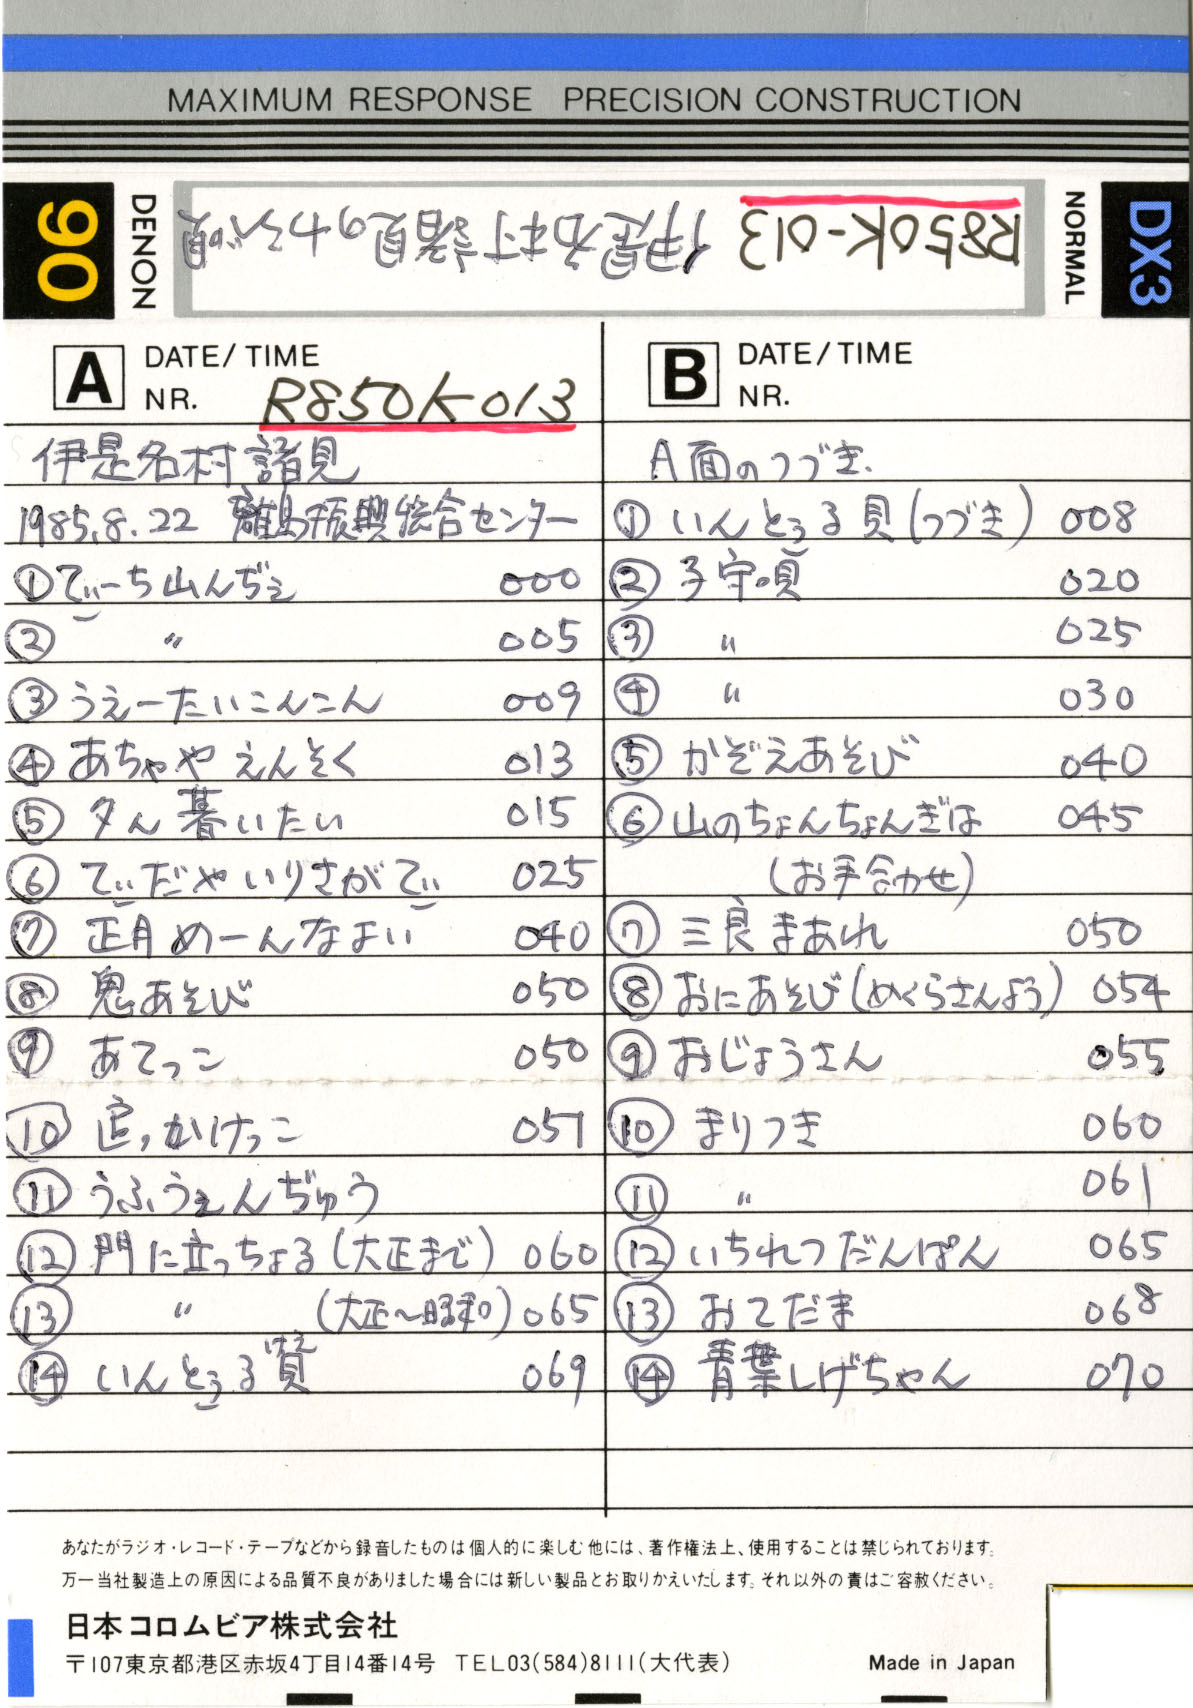 MAXIMUM RESPONSE PRECISION CONSTRUCTION
90 DENON R850K-013 伊是名村諸見のわらべ唄 NORMAL DX3
A DATE/TIME
NR. R850K013
伊是名村 諸見
1985.8.22 離島振興総合センター
①てぃーち山んぢぇ 000
② 〃 005
③うえーたいこんこん 009
④あちゃや えんそく 013
⑤夕ん暮いたい 015
⑥てぃだや いりさがてぃ 025
⑦正月めーんなよい 040
⑧鬼あそび 050
⑨あてっこ 050
⑩追っかけっこ 057
⑪うふうぇんぢゅう
⑫門に立っちょる(大正まで) 060
⑬ 〃 (大正〜昭和) 065
⑭いんとぅる貝 069
B DATE/TIME
NR.
A面のつづき.
①いんとぅる貝(つづき) 008
②子守唄 020
③ 〃 025
④ 〃 030
⑤かぞえあそび 040
⑥山のちょんちょんぎは 045
(お手合わせ)
⑦三良まあれ 050
⑧おにあそび(めくらさんよう) 054
⑨おじょうさん 055
⑩まりつき 060
⑪ 〃 061
⑫いちれつだんぱん 065
⑬おてだま 068
⑭青葉しげちゃん 070
あなたがラジオ・レコード・テープなどから録音したものは個人的に楽しむ他には、著作権法上、使用することは禁じられております。
万一当社製造上の原因による品質不良がありました場合には新しい製品とお取りかえいたします。それ以外の責はご容赦ください。
日本コロムビア株式会社
〒107東京都港区赤坂4丁目14番14号 TEL03(584)8111(大代表) Made in Japan